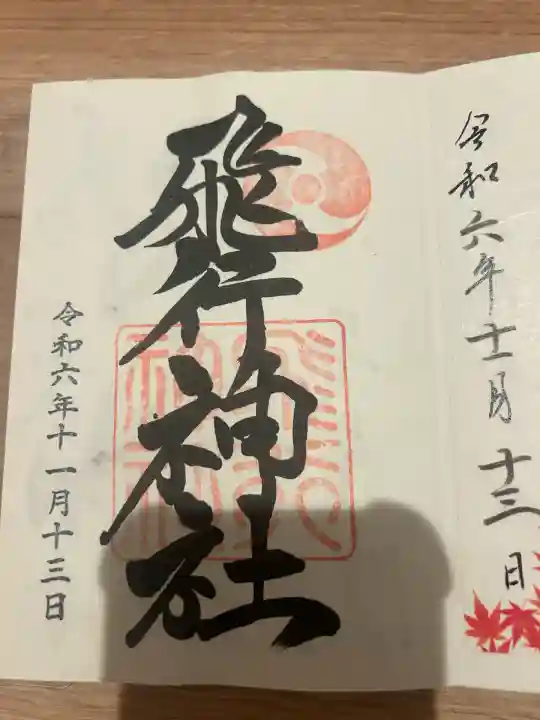 令和六年十一月十三日
飛行神社
令和六年十一月十三日